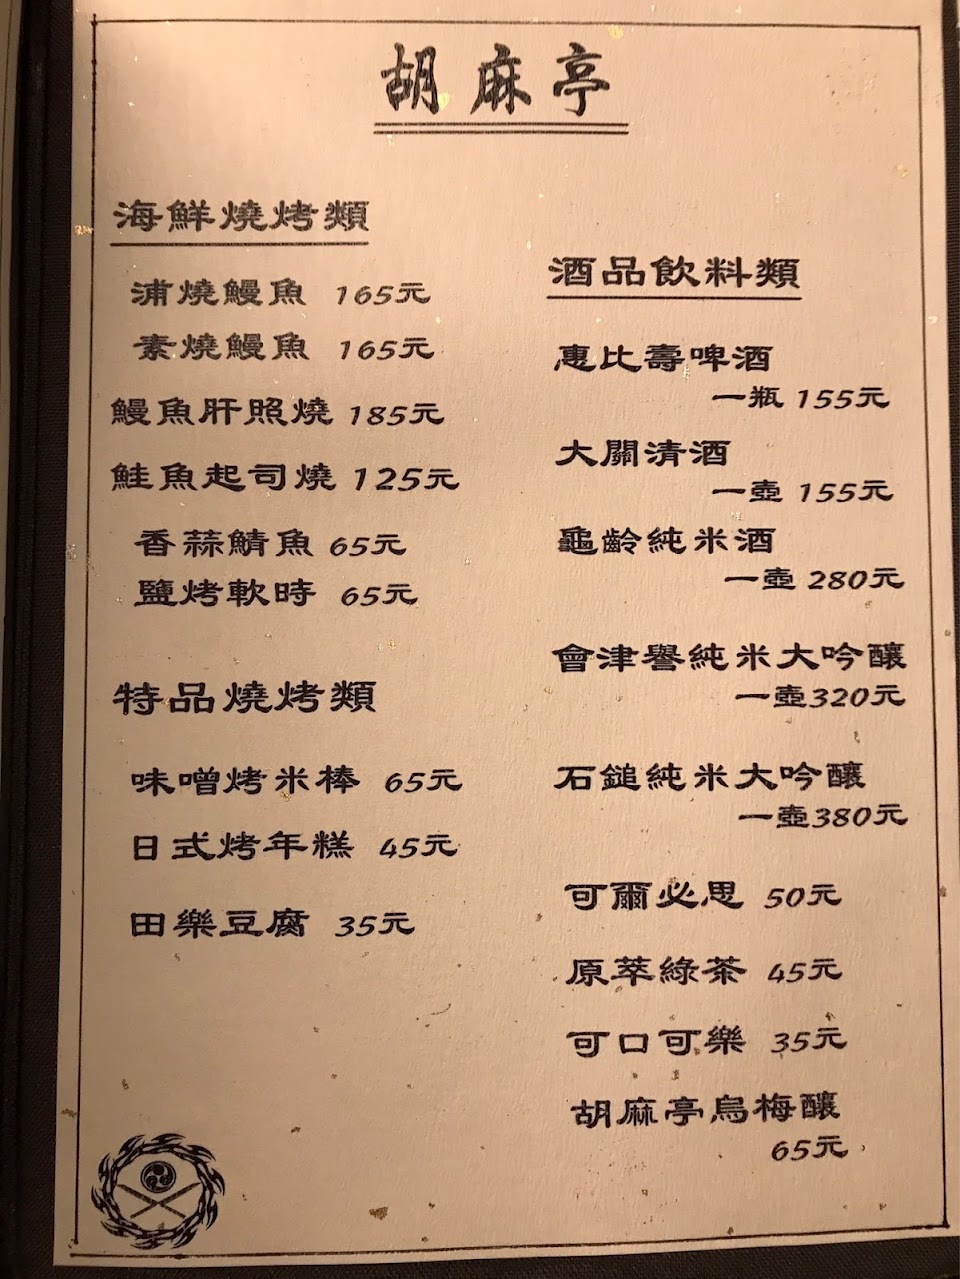 胡麻亭
海鮮燒烤類
浦燒鰻魚 165元
素燒鰻魚 165元
鰻魚肝照燒 185元
鮭魚起司燒 125元
香蒜鯖魚 65元
鹽烤軟時 65元
特品燒烤類
味噌烤米棒 65元
日式烤年糕 45元
田樂豆腐 35元
酒品飲料類
惠比壽啤酒
一瓶 155元
大關清酒
一壺 155元
龜齡純米酒
一壺 280元
會津譽純米大吟釀
一壺320元
石鎚純米大吟釀
一壺380元
可爾必思 50元
原萃綠茶 45元
可口可樂 35元
胡麻亭烏梅釀
65元